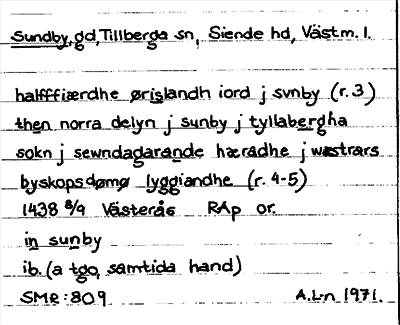 Sundby, gd, Tillberga sn, Siende hd, Västm. l.
halffierdhe ørislandh iord j svnby (r. 3)
then norra delyn j sunby j tyllabergha
sokn j sewndagarande hæradhe j wæstrars
byskopsdømø lyggiandhe (r. 4-5)
1438 8/9 Västerås RAp or.
in sunby
ib. (a tgo, samtida hand)
SMR: 809 A.L-n 1971.